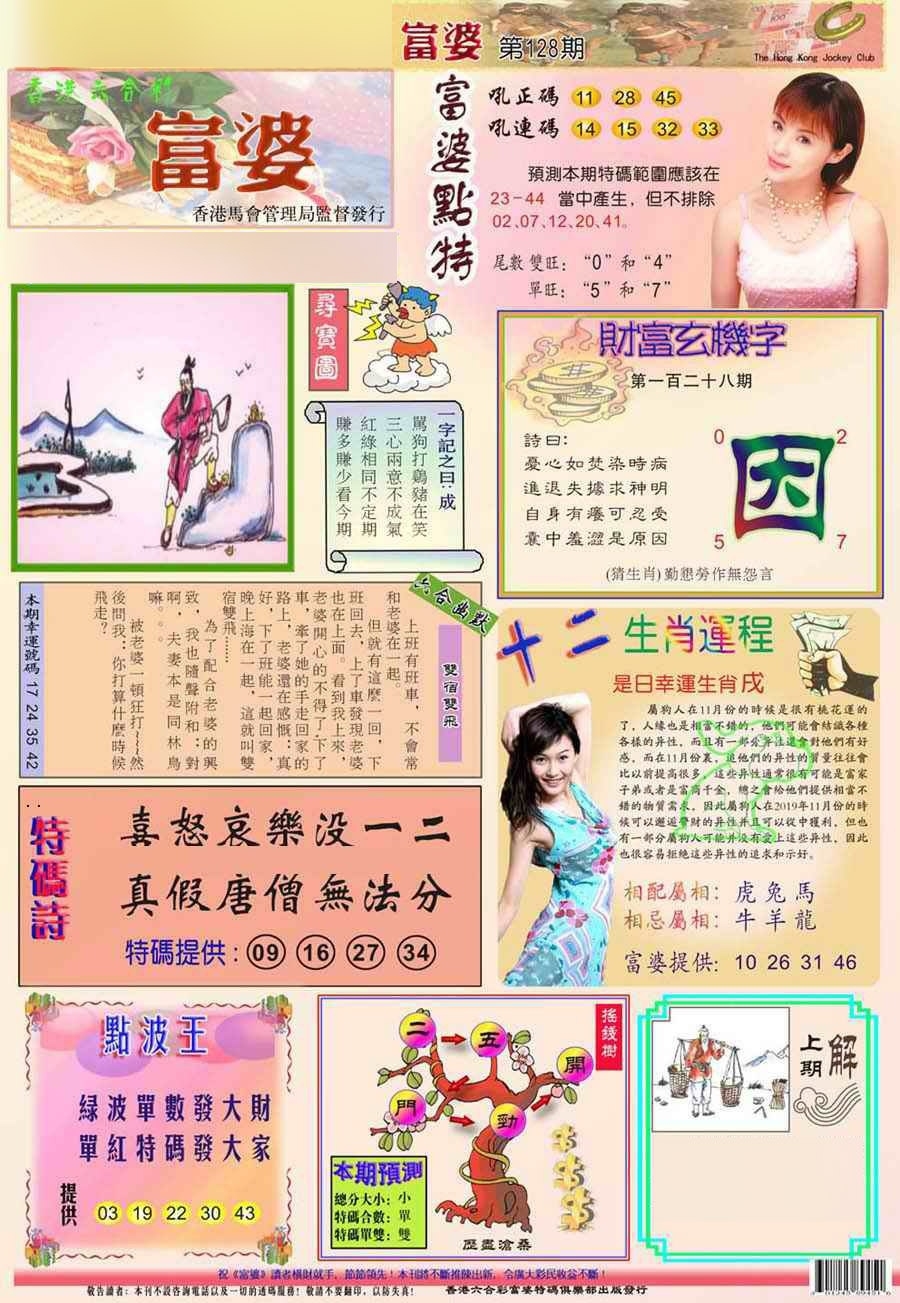 富婆 第128期
The Hong Kong Jockey Club
香港六合彩
富婆
香港馬會管理局監督發行
富婆點特
吼正碼 11 28 45
吼連碼 14 15 32 33
預測本期特碼範圍應該在
23-44 當中產生，但不排除
02、07、12、20、41。
尾數雙旺：“0”和“4”
單旺：“5”和“7”
尋寶圖
一字記之曰：成
罵狗打鷄豬在笑
三心兩意不成氣
紅綠相同不定期
賺多賺少看今期
財富玄機字
第一百二十八期
詩曰：
憂心如焚染時病
進退失據求神明
自身有癢可忍受
囊中羞澀是原因
0 2
因
5 7
(猜生肖)勤懇勞作無怨言
六合幽默
雙宿雙飛
上班有班車，不會常
和老婆在一起。
但就有這麼一回，下
班回去，上了車發現老婆
也在上面。看到我上來，
老婆開心的不得了，下了
車，牽了她的手走回家的
路上，老婆還在感慨：真
好，下了班能一起回家，
晚上海在一起，這就叫雙
宿雙飛……
為了配合老婆的興
致，我也隨聲附和：對
啊，夫妻本是同林鳥
嘛。。
被老婆一頓狂打~~~然
後問我：你打算什麼時候
飛走？
本期幸運號碼 17 24 35 42
十二生肖運程
是日幸運生肖戌
屬狗人在11月份的時候是很有桃花運的
了，人緣也是相當不錯的，他們可能會結識各種
各樣的异性，而且有一部分异性還會對他們有好
感，而在11月份裏，追他們的异性的質量往往會
比以前提高很多，這些异性通常很有可能是富家
子弟或者是富商千金，總之會給他們提供相當不
錯的物質需求，因此屬狗人在2019年11月份的時
候可以邂逅多財的异性，并且可以從中獲利，但也
有一部分屬狗人可能并没有愛上這些异性，因此
也很容易拒絶這些异性的追求和示好。
相配屬相：虎兔馬
相忌屬相：牛羊龍
富婆提供：10 26 31 46
特碼詩
喜怒哀樂没一二
真假唐僧無法分
特碼提供：09 16 27 34
點波王
緑波單數發大財
單紅特碼發大家
提供 03 19 22 30 43
搖錢樹
二 五 開 門 勁
本期預測
總分大小：小
特碼合數：單
特碼單雙：雙
歷盡滄桑
上期解
祝《富婆》讀者橫財就手，節節領先！本刊將不斷推陳出新，令廣大彩民收益不斷！
敬告讀者：本刊不設咨詢電話以及一切的透碼服務！敬請不要翻印，以防失真！ 香港六合彩富婆特碼俱樂部出版發行